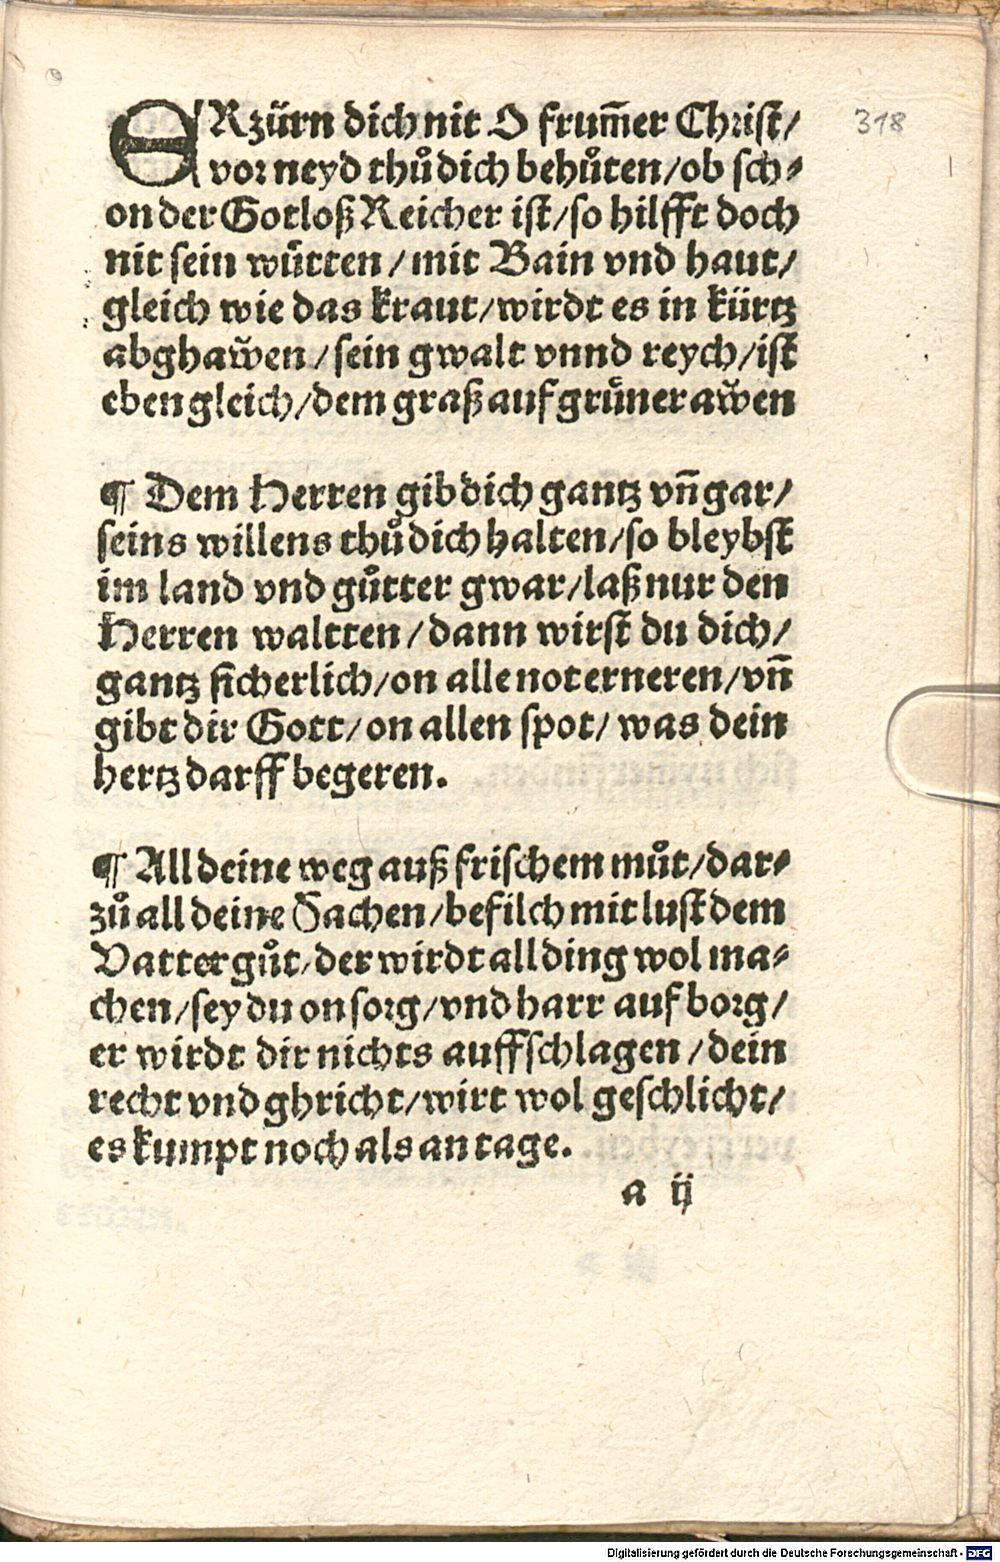 ERzürn dich nit O frum̃er Christ/
318
vor neyd thů dich behůten/ob sch⸗
on der Gotloß Reicher ist/so hilfft doch
nit sein wütten/mit Bain vnd haut/
gleich wie das kraut/wirdt es in kürtz
abghaw̃en/sein gwalt vnnd reych/ist
eben gleich/dem graß auf grůner aw̃en
¶ Dem Herren gib dich gantz vñ gar/
seins willens thů dich halten/so bleybst
im land vnd gůtter gwar/laß nur den
Herren waltten/dann wirst du dich/
gantz sicherlich/on alle not erneren/vñ
gibt dir Gott/on allen spot/was dein
hertz darff begeren.
¶ All deine weg auß frischem můt/dar⸗
zů all deine Sachen/befilch mit lust dem
Vatter gůt/der wirdt all ding wol ma⸗
chen/sey du on sorg/vnd harr auf borg/
er wirdt dir nichts auffschlagen/dein
recht vnd ghricht/wirt wol geschlicht/
es kumpt noch als an tage.
a ij
Digitalisierung gefördert durch die Deutsche Forschungsgemeinschaft - DFG